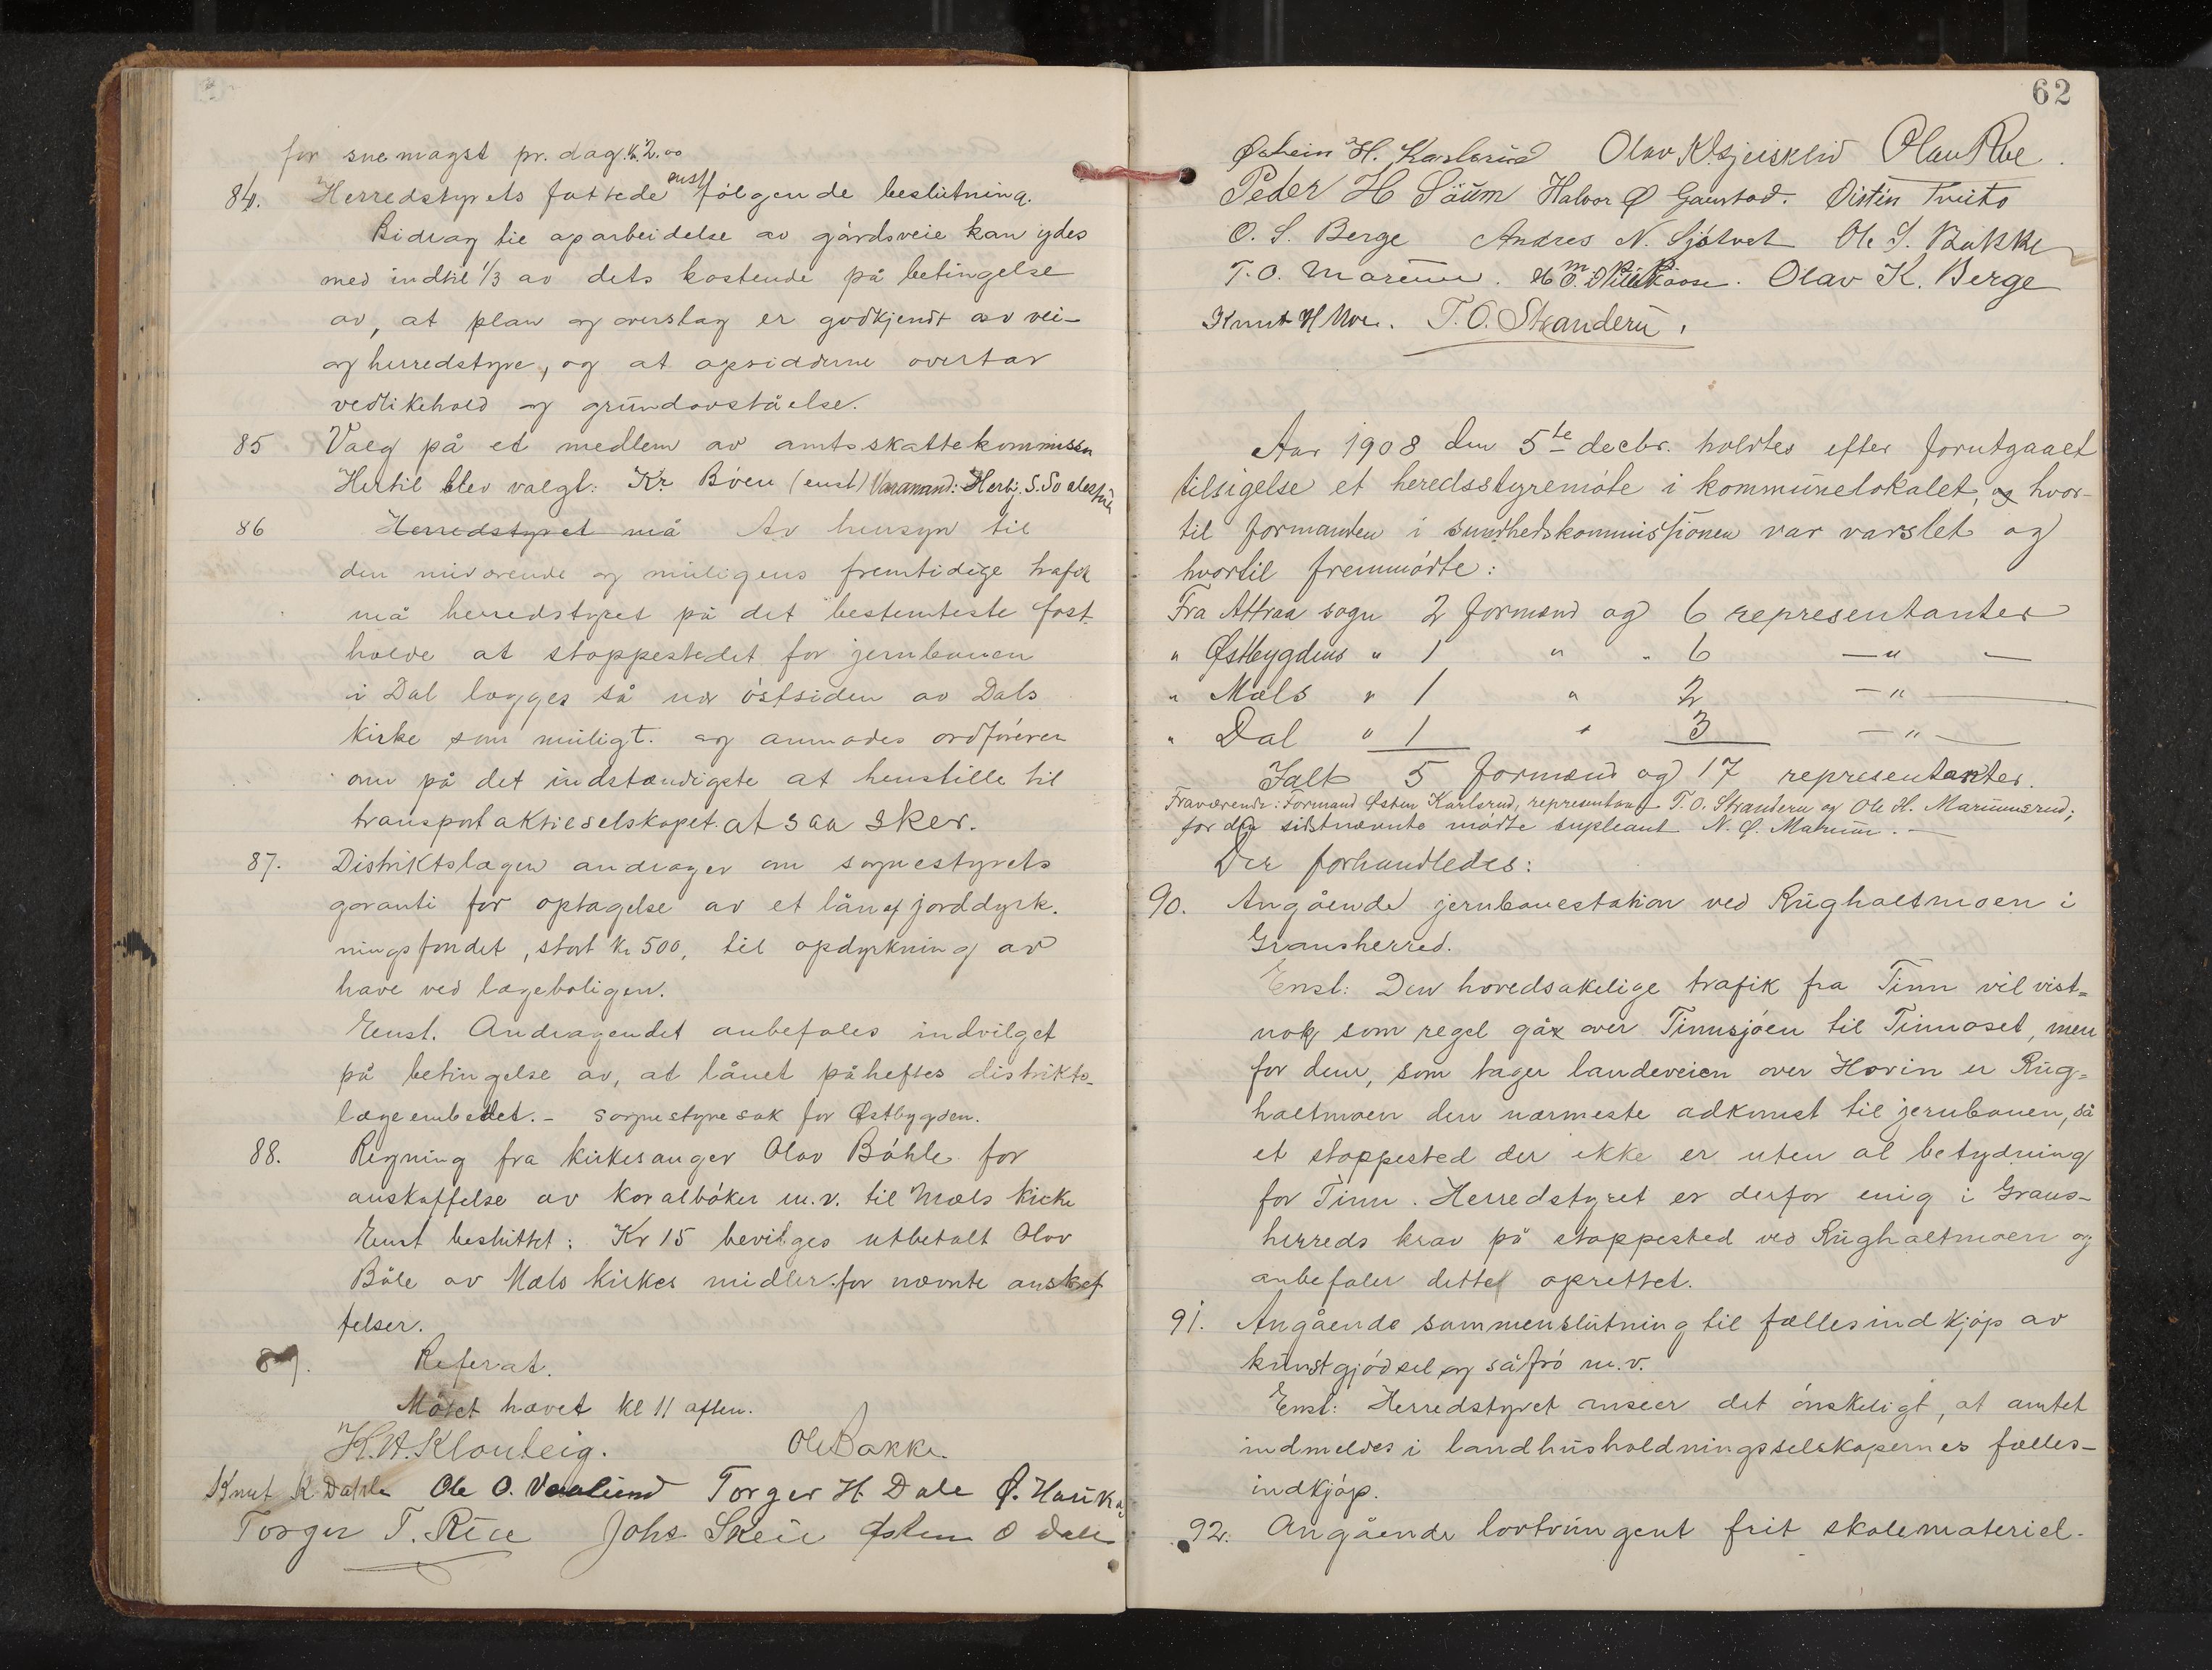 for snemagst pr. dag. k. 2.00
84. Herredstyrets fattede enst følgende beslutning.
Bidrag til oparbeidelse av gårdsveie kan ydes
med indtil 1/3 av dets kostende på betingelse
av, at plan og overslag er godkjendt av vei-
og herredstyre, og at opsidderne overtar
vedlikehold og grundavståelse.
85 Valg på et medlem av amtsskattekommissn
Hertil blev valgt: Kr. Bøen (enst) Varamand: Herbj. S.
86 Herredstyret må Av hensyn til
den nuværende og muligens fremtidige trafik
må herredstyret på det bestemteste fast-
holde at stoppestedet for jernbanen
i Dal lægges så nær østsiden av Dals
kirke som muligt. og anmodes ordføreren
om på det indstændigste at henstille til
transportaktieselskapet at saa sker.
87. Distriktslægen andrager om sognestyrets
garanti for optagelse av et lån af jorddyrk-
ningsfondet, stort kr 500, til opdyrkning av
have ved lægeboligen.
Enst. Andragendet anbefales indvilget
på betingelse av, at lånet påheftes distrikts-
lægeembedet. - sognestyresak for Østbygden.
88. Regning fra kirkesanger Olav Bøhle for
anskaffelse av koralbøker m.v. til Mæls kirke
Enst besluttet: Kr 15 bevilges utbetalt Olav
Böle av Mæls kirkes midler for nævnte anskaf
felser.
89. Referat.
Møtet hævet kl 11 aften.
H. A. Klonteig. Ole Bakke
Knut K. Dahle Ole O. Vaalund Torger H. Dale Ø. Hauka
Torger T. Rue Johs Skeie Østen O Dale
62
Østein H. Karlsrud Olav Olav Roe.
Peder H Såum Halvor Ø Gaustad. Øistin Tveito
O. S. Berge Andres N. Sjøtvet Ole S. Bakke
T. O. Marum. Olav K. Berge
Knut H Moe. T. O. Staanderu.
Aar 1908 den 5te decbr. holdtes efter forutgaaet
tilsigelse et heredsstyremøte i kommunelokalet, og hvor-
til formanden i sundhedskommissionen var varslet og
hvortil fremmødte:
Fra Attraa sogn 2 formænd og 6 representanter
" Østbygdens " 1 " " 6 — " —
" Mæls " 1 " 2 — " —
" Dal " 1 " 3 — " —
Ialt 5 formænd og 17 representanter.
Fraværende: Formand Østen Karlsrud, representant T. O. Straanderu og Ole H. Marumsrud;
for den sidstnævnte mødte supleant N. Ø. Marum. —
Der forhandledes:
90. Angående jernbanestation ved Rughaltmoen i
Gransherred.
Enst: Den hovedsakelige trafik fra Tinn vil vist=
nok som regel gå over Tinnsjøen til Tinnoset, men
for dem, som tager landeveien over Hovin er Rug=
haltmoen den nærmeste adkomst til jernbanen, så
et stoppested der ikke er uten al betydning
for Tinn. Herredstyret er derfor enig i Grans-
herreds krav på stoppested ved Rughaltmoen og
anbefaler dette oprettet.
91. Angående sammenslutning til fællesindkjøp av
kunstgjødsel og såfrø m.v.
Enst: Herredstyret anseer det ønskeligt, at amtet
indmeldes i landhusholdningsselskapernes fælles-
indkjøp.
92. Angående lovtvungent frit skolemateriel.